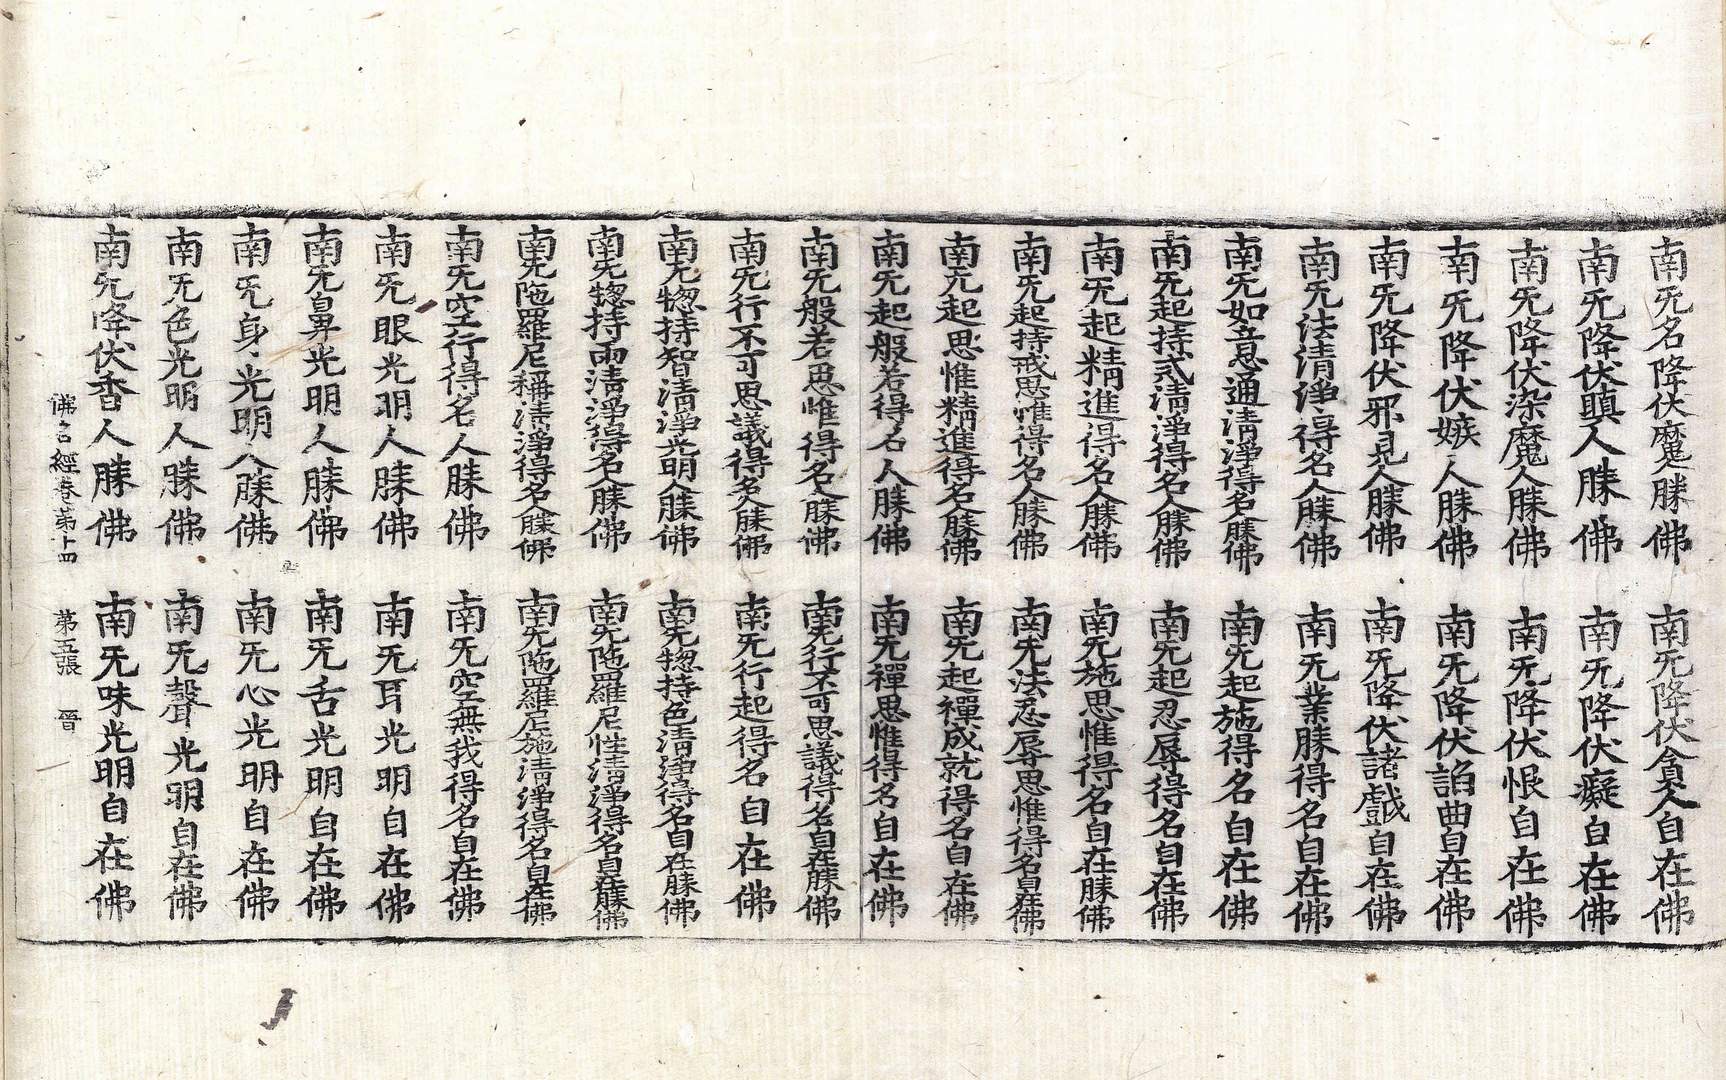 南无名降伏魔人勝佛 南无降伏貪人自在佛
南无降伏瞋人勝佛 南无降伏癡自在佛
南无降伏染魔人勝佛 南无降伏恨自在佛
南无降伏嫉人勝佛 南无降伏諂曲自在佛
南无降伏邪見人勝佛 南无降伏諸戲自在佛
南无法清淨得名人勝佛 南无業勝得名自在佛
南无如意通清淨得名勝佛 南无起施得名自在佛
南无起持戒清淨得名人勝佛 南无起忍辱得名自在佛
南无起精進得名人勝佛 南无施思惟得名自在勝佛
南无起持戒思惟得名人勝佛 南无法忍辱思惟得名自在佛
南无起思惟精進得名人勝佛 南无起禪成就得名自在佛
南无起般若得名人勝佛 南无禪思惟得名自在佛
南无般若思惟得名人勝佛 南无行不可思議得名自在勝佛
南无行不可思議得名人勝佛 南无行起得名自在佛
南无惣持智清淨光明人勝佛 南无惣持色清淨得名自在勝佛
南无惣持雨清淨得名人勝佛 南无陁羅尼性清淨得名自在勝佛
南无陁羅尼稱清淨得名人勝佛 南无陁羅尼施清淨得名自在佛
南无空行得名人勝佛 南无空無我得名自在佛
南无眼光明人勝佛 南无耳光明自在佛
南无鼻光明人勝佛 南无舌光明自在佛
南无身光明人勝佛 南无心光明自在佛
南无色光明人勝佛 南无聲光明自在佛
南无降伏香人勝佛 南无味光明自在佛
佛名經卷第十四 第五張 晉